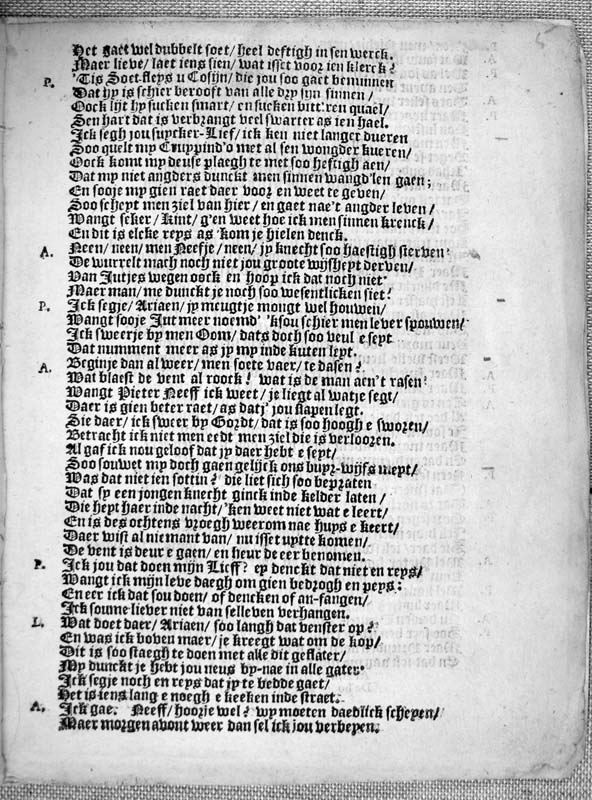 Het gaet wel dubbelt soet/ heel deftigh in sen werck.
Maer lieve/ laet iens sien/ wat isset voor ien klerck?
P. 'Tis Soet-fleys u Cosijn/ die jou soo gaet beminnen
Dat hy is schier berooft van alle dry sijn sinnen/
Oock lijt hy sucken smart/ en sucken bitt'ren quael/
Sen hart dat is verbrangt veel swarter as ien hael.
Ick segh jou suycker-Lief/ ick ken niet langer dueren
Soo quelt my Cuppind'o met al sen wongder kueren/
Oock komt my deuse plaegh te met soo heftigh aen/
Dat my niet angders dunckt men sinnen wangd'len gaen;
En sooje my gien raet daer voor en weet te geven/
Soo scheyt men ziel van hier/ en gaet nae't angder leven/
Wangt seker/ kint/ g'en weet hoe ick men sinnen krenck/
En dit is elcke reys as 'kom je hielen denck.
A. Neen/ neen/ men Neefje/ neen/ jy knecht soo haestigh sterven?
De wurrelt mach noch niet jou groote wijsheyt derven/
Van Jutjes wegen oock en hoop ick dat noch niet.
Maer man/ me dunckt je noch soo wesentlicken siet?
P. Ick segje/ Ariaen/ jy meugtje mongt wel houwen/
Wangt sooje Jut meer noemd' 'ksou schier men lever spouwen/
Ick sweerje by men Oom/ dats doch soo veul e seyt
Dat numment meer as jy my inde kuten leyt.
A. Beginje dan al weer/ men soete vaer/ te dasen?
Wat blaest de vent al roock? wat is de man aen't rasen?
Wangt Pieter Neeff ick weet/ je liegt al watje segt/
Daer is gien beter raet/ as datj' jou slapen legt.
Sie daer/ ick sweer by Gordt/ dat is soo hoogh e sworen/
Betracht ick niet men eedt men ziel die is verlooren.
Al gaf ick nou geloof dat jy daer hebt e seyt/
Soo souwet my doch gaen gelijck ons buyr-wijfs meyt/
Was dat niet ien sottin? die liet sich soo bepraten
Dat sy een jongen knecht ginck inde kelder laten/
Die heyt haer inde nacht/ 'ken weet niet wat e leert/
En is des ochtens vroegh weerom nae huys e keert/
Daer wist al niemant van/ nu isset uytte komen/
De vent is deur e gaen/ en heur de eer benomen.
P. Ick jou dat doen mijn Lieff? ey denckt dat niet en reys/
Wangt ick mijn leve daegh om gien bedrogh en peys;
En eer ick dat sou doen/ of dencken of an-fangen/
Ick soume liever niet van selleven verhangen.
L. Wat doet daer/ Ariaen/ soo langh dat venster op?
En was ick boven maer/ je kreegt wat om de kop/
Dit is soo staegh te doen met alle dit geslater/
My dunckt je hebt jou neus by-nae in alle gater.
Ick segje noch en reys dat jy te bedde gaet/
Het is iens lang e noegh e keeken inde straet.
A. Ick gae. Neeff/ hoorje wel? wy moeten daedlick scheyen/
Maer morgen avont weer dan sel ick jou verbeyen.